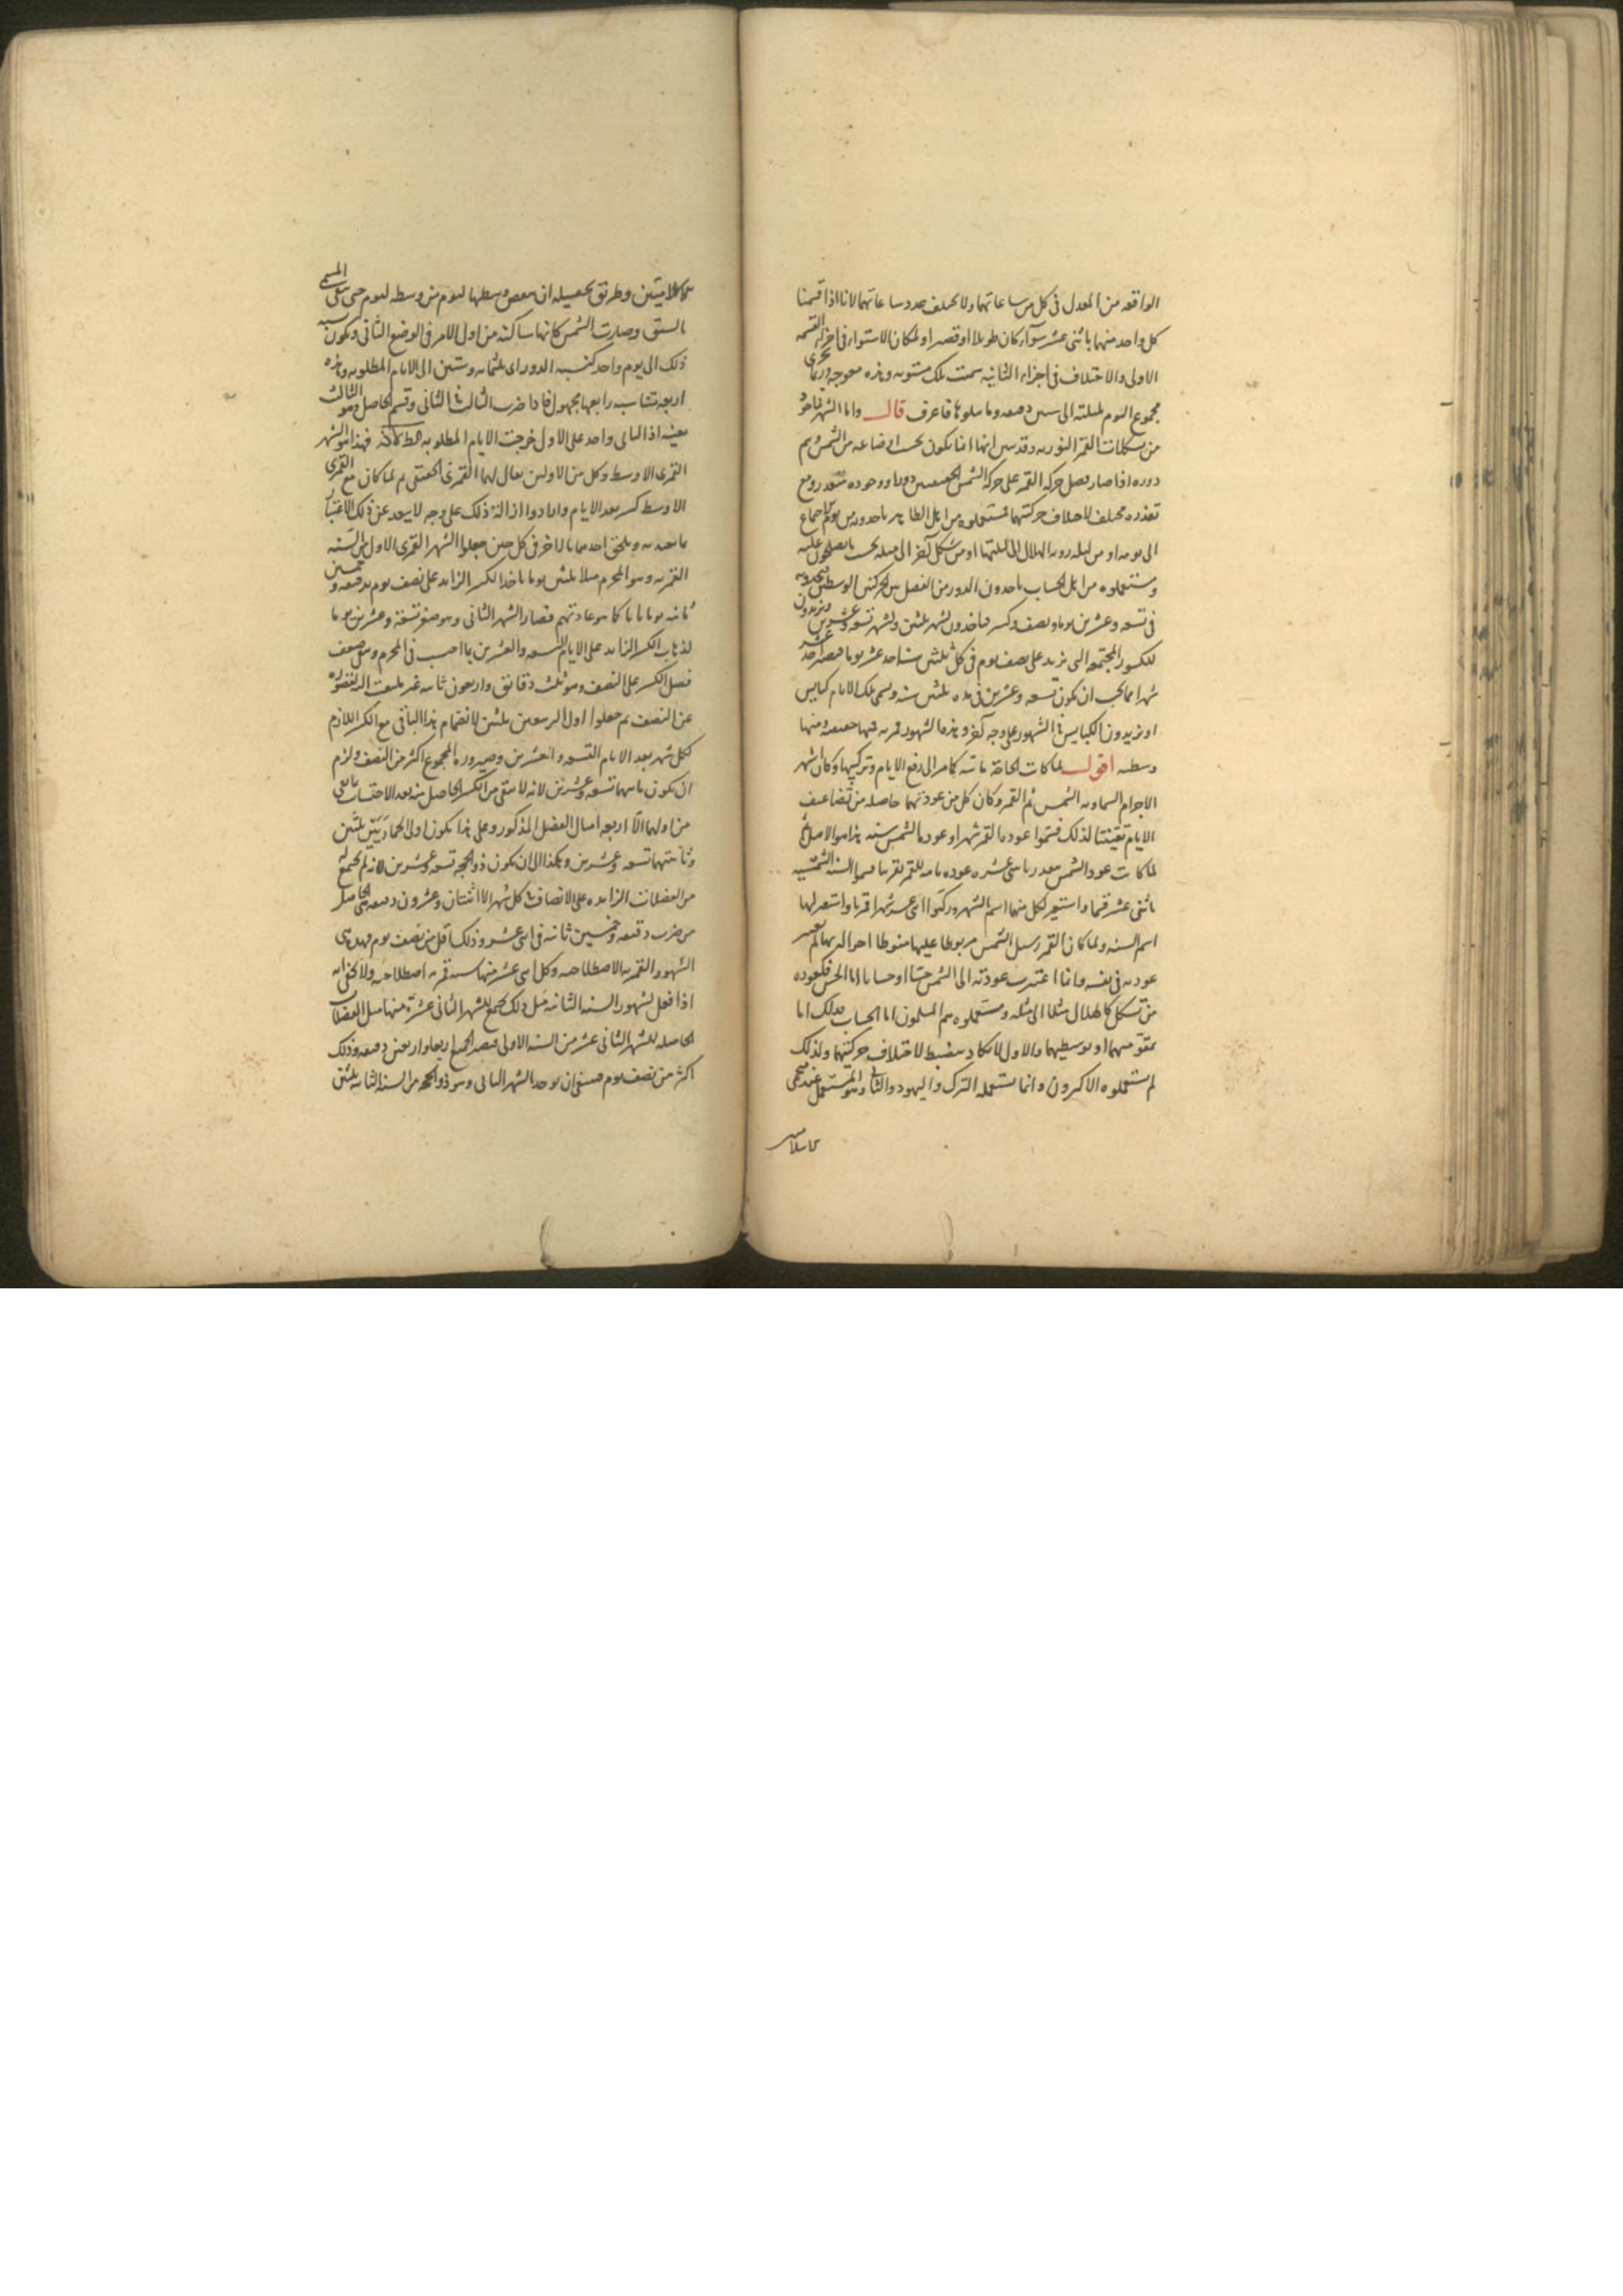 الواقعه من المعدل فى كل من ساعاتهما ولا يختلف عدد ساعاتهما لانا اذا قسمنا
كل واحد منهما باثنى عشر سوآء كان طويلا او قصيرا ولمكان الاستواء فى اجزاء القسمه
الاولى والاختلاف فى اجزاء الثانيه سميت تلك مستويه وهذه معوجه وربما
مجموع اليوم بليلته الى ستين دقيقه وما يتلوها فاعرف قال واما الشهر فماخوذ
من تشكلات القمر النوريه وقد تبين انها انما تكون بحسب اوضاعه من الشمس ويتم
دوره اذا صار فضل حركة القمر على حركة الشمس الحقيقيتين دورا ووجوده متعذر ومع
تعذره مختلف لاختلاف حركتيهما فمستعملوه من اهل الظاهر ياخذونه من يوم الاجتماع
الى يومه او من ليله رويه الهلال الى ليلتها او من شكل آخر الى مثله بحسب ما يصطلحون عليه
ومستعملوه من اهل الحساب ياخذون الدور من الفضل بين الحركتين الوسطيين فيجدونه
فى تسعه وعشرين يوما ونصف وكسر فياخذون لشهر ثلثين ولشهر تسعه وعشرين ويزيدون
للكسور المجتمعه التى تزيد على نصف يوم فى كل ثلثين سنة احد عشر يوما فيصير احد عشر
شهرا مما يجب ان يكون تسعه وعشرين فى مده ثلثين سنه ويسمى تلك الايام كبايس
او يزيدون الكبايس فى الشهور على وجه آخر وهذه الشهور قمريه فمنها حقيقيه ومنها
وسطيه اقول لما كانت الحاجة ماسه كما مر الى رفع الايام وتركيبها وكان اشهر
الاجرام السماويه الشمس ثم القمر وكان كل من عودتيهما حاصله من تضاعيف
الايام تعينتا لذلك فسموا عودة القمر شهرا وعودة الشمس سنه هذا هو الاصل ثم
لما كانت عودة الشمس بقدر اثنى عشره عوده تامه للقمر تقريبا قسموا السنه الشمسيه
باثنى عشر قسما واستعير لكل منها اسم الشهر وركبوا اثنى عشر شهرا قمريا واستعير لها
اسم السنه ولما كان القمر رسيل الشمس مربوطا عليها منوطا احواله بها لم يعتبر
عودته فى نفسه وانما اعتبرت عودته الى الشمس حسا او حسابا اما الحس فكعوده
من تشكل كالهلال مثلا الى مثله ومستعملوه هم المسلمون اما الحساب فذلك اما
بتقويميهما او بوسطيهما والاول لا يكاد ينضبط لاختلاف حركتيهما ولذلك
لم يستعملوه الاكثرون وانما يستعمله الترك واليهود والثانى وهو المستعمل عند منجمى
الاسلام
كالاميتين وطريق تحصيله ان ينقص وسطها ليوم من وسطه ليوم حتى يبقى السبق
بالسبق وصارت الشمس كانها ساكنه من اول الامر فى الوضع الثانى ويكون نسبة
ذلك الى يوم واحد كنسبه الدور اى ثلثمايه وستين الى الايام المطلوبه وهذه
اربعه متناسبه رابعها مجهول فاذا ضرب الثالث فى الثانى وقسم الحاصل وهو الثالث
بعينه اذ الثانى واحد على الاول خرجت الايام المطلوبه كط لا ن فهذا هو الشهر
القمرى الاوسط وكل من الاولين يقال لهما القمرى الحقيقى ثم لما كان مع القمرى
الاوسط كسر بعد الايام وارادوا ازالة ذلك على وجه لا يبعد عن ذلك الاعتبار
ما يعتد به ويلحق احدهما بالاخر فى كل حين جعلوا الشهر القمرى الاول من السنه
القمريه وهو المحرم مثلا ثلثين يوما باخذ الكسر الزايد على نصف يوم بدقيقه وخمسين
ثانيه يوما تاما كما هو عادتهم فصار الشهر الثانى وهو صفر تسعة وعشرين يوما
لذهاب الكسر الزايد على الايام التسعه والعشرين بما احتسب فى المحرم وبقى ضعف
فضل الكسر على النصف وهو ثلث دقائق واربعون ثانيه غير ملتفت اليه لقصوره
عن النصف ثم جعلوا اول الربيعين ثلثين لانضمام هذا الباقى مع الكسر اللازم
لكل شهر بعد الايام التسعه والعشرين وصيروره المجموع اكثر من النصف ولزم
ان يكون ثانيهما تسعه وعشرين لانه لا يبقى من الكسر الحاصل منه بعد الاحتساب ما بقى
من اولهما الّا اربعه امثال الفضل المذكور وعلى هذا يكون اولى الجماديين ثلثين
وثانيتهما تسعه وعشرين وهكذا الى ان يكون ذو الحجه تسعه وعشرين لانه لم يجتمع له
من الفضلات الزايده على الانصاف فى كل شهر الا اثنتان وعشرون دقيقه هى الحاصله
من ضرب دقيقه وخمسين ثانيه فى اثنى عشر وذلك اقل من نصف يوم فهذه هى
الشهور القمريه الاصطلاحيه وكل اثنى عشر منها سنه قمريه اصطلاحيه ولا يخفى انه
اذا فعل لشهور السنه الثانيه مثل ذلك يجتمع للشهر الثانى عشر منها مثل الفضلات
الحاصله للشهر الثانى عشر من السنه الاولى فيصير الجميع اربعا واربعين دقيقه وذلك
اكثر من نصف يوم فينبغى ان يوخذ الشهر الثانى وهو ذو الحجه من السنه الثانيه ثلثين